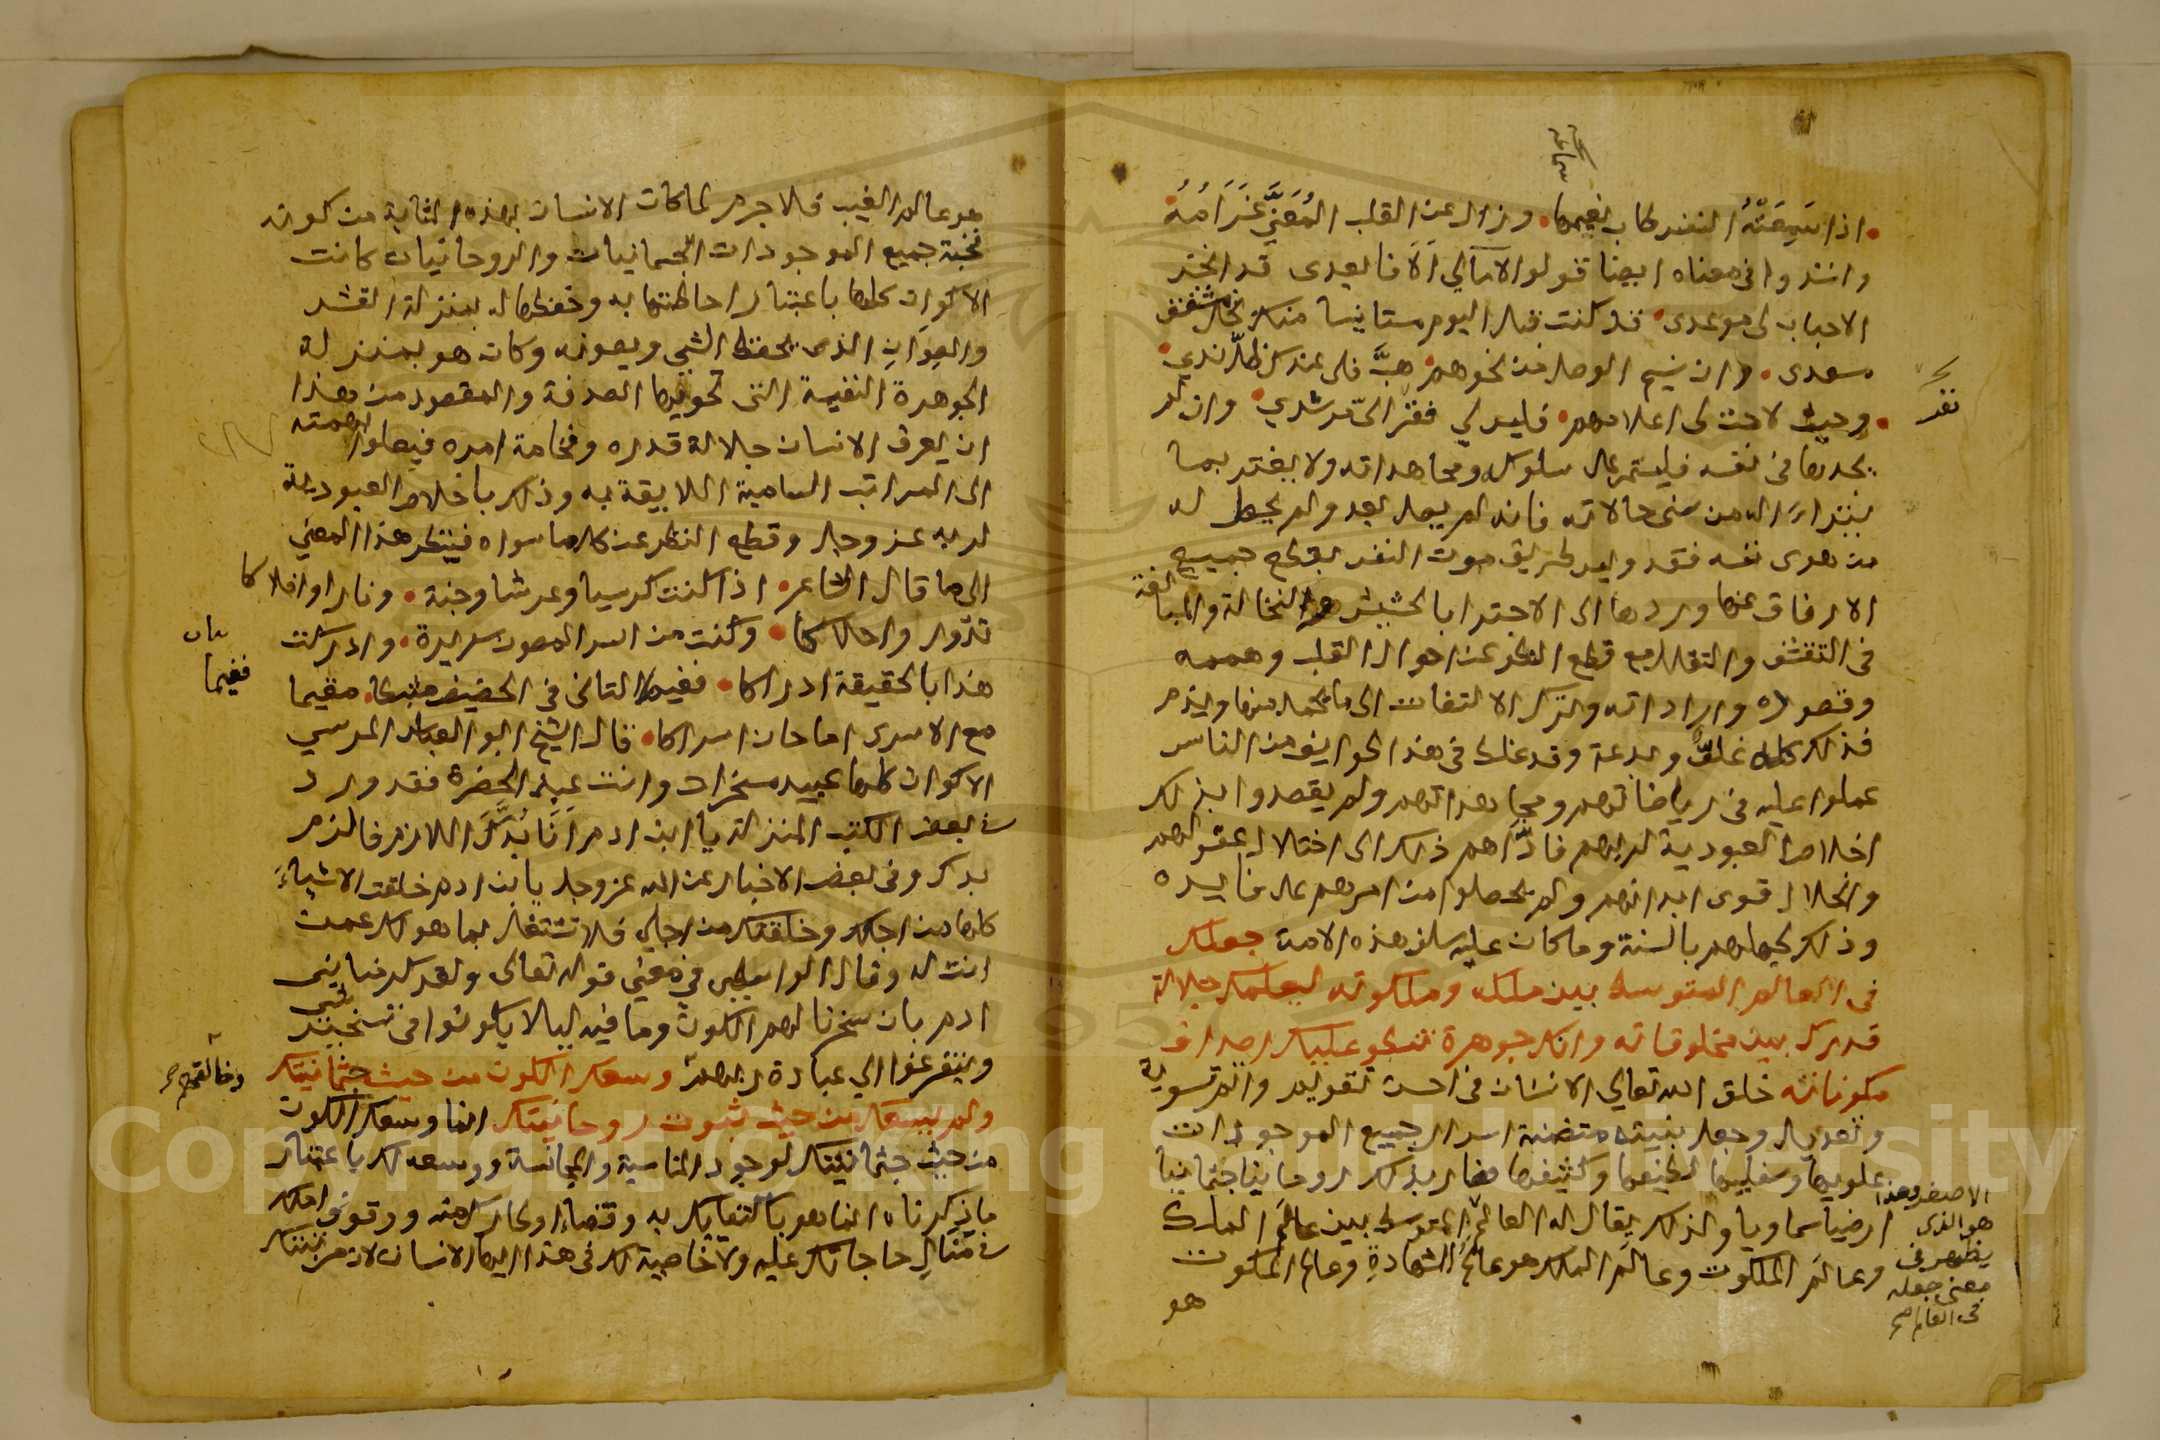 اذا سمعته النفس طاب نعيمها وزال عن القلب المعنى غرامه
وانشدوا في معناه ايضا قولوا لامالي الا فابعدى قد انجز
الاحباب لى موعدى قد كنت قبل اليوم مستانسا منك بخل مشفق
مسعدى وان نسيم الوصل من نحوهم هب فلى عندك ظل ندي
وحيث لاحت لى اعلامهم فليس لي فقر الى مرشدي وان لم
نفر
يجدها في نفسه فليستمر على سلوكه ومجاهداته ولا يغتر بما
يتراءى له من سنى حالاته فانه لم يصل بعد ولم يحط له
من هوى نفسه فقد وليس طريق موت النفس بقطع جميع
الارفاق عنها وردها الى الاجتزا بالحشيش والنخالة والمبالغة
في التقشف والتقلل مع قطع النظر عن احوال القلب وهممه
وقصوده واراداته وترك الالتفات الى ما يحمد منها ويذم
فذلك كله غلو وبدعة وقد غلط في هذا طوايف من الناس
عملوا عليه في رياضاتهم ومجاهداتهم ولم يقصدوا بذلك
اخلاص العبودية لربهم فادّاهم ذلك الى اختلال عقولهم
وانحلال قوى ابدانهم ولم يحصلوا من امرهم على فايده
وذلك لجهلهم بالسنة وما كان عليه سلف هذه الامة جعلك
في العالم المتوسط بين ملكه وملكوته ليعلمك جلالة
قدرك بين مخلوقاته وانك جوهرة تنطوي عليك اصداف
مكوناته خلق الله تعالي الانسان في احسن تقويم واتم تسوية
وتعديل وجعل بنيته متضمنة اسرار جميع الموجودات
علويها وسفليها لطيفها وكثيفها فصار بذلك روحانيا جثمانيا
ارضيا سماويا ولذلك يقال له العالم المتوسط بين عالم الملك
وعالم الملكوت وعالم الملك هو عالم الشهادة وعالم الملكوت
الاصغر وهذا
هو الذى
يظهر في
معنى جعله
في العالم صح
هو
هو عالم الغيب فلا جرم لما كان الانسان بهذه المثابة من كونه
نخبة جميع الموجودات الجسمانيات والروحانيات كانت
الاكوان كلها باعتبار احاطتها به وحفظها له بمنزلة القشر
والصوان الذى يحفظ الشي ويصونه وكان هو بمنزلة
الجوهرة النفيسة التى تحويها الصدفة والمقصود من هذا
ان يعرف الانسان جلالة قدره وفخامة امره فيعلوا بهمته
الى المراتب السامية اللايقة به وذلك باخلاص العبودية
لربه عز وجل وقطع النظر عن كل ما سواه فينظر هذا المعنى
الى ما قال الشاعر اذا كنت كرسيا وعرشا وجنة ونارا وافلاكا
تدور واملاكا وكنت من السر المصون سريرة وادركت
هذا بالحقيقة ادراكا ففيم التانى في الحضيض مثبطا مقيما
ففيما
مع الاسرى اما حان اسراكا قال الشيخ ابو العباس المرسي
الاكوان كلها عبيد مسخرات وانت عبد الحضرة فقد ورد
في بعض الكتب المنزلة يا ابن ادم انا بدك اللازم فالزم
بدك وفي بعض الاخبار عن الله عز وجل يا بن ادم خلقت الاشياء
كلها من اجلك وخلقتك من اجلي فلا تشتغل بما هو لك عمن
انت له وقال الواسطى في معنى قوله تعالى ولقد كرمنا بنى
ادم بان سخرنا لهم الكون وما فيه ليلا يكونوا في تسخير شي
ويتفرغوا الي عبادة ربهم وسعك الكون من حيث جثمانيتك
ولم يسعك من حيث ثبوت روحانيتك انما وسعك الكون
من حيث جثمانيتك لوجود المناسبة والمجانسة ووسعه لك باعتبار
ما ذكرناه انما هو بالتعلق به وقضاء اوطارك منه ووقوف املك
في مثال حاجاتك عليه ولا خاصية لك في هذا ايها الانسان